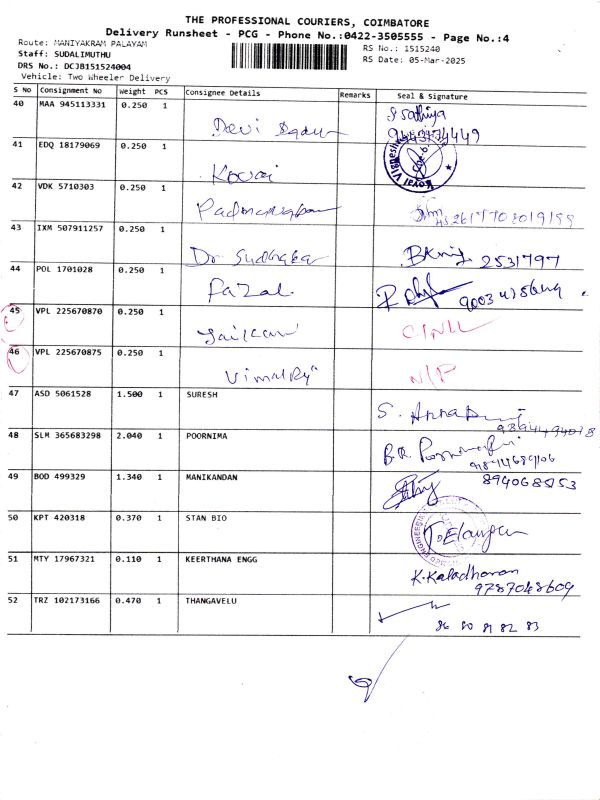 THE PROFESSIONAL COURIERS, COIMBATORE
Delivery Runsheet - PCG - Phone No.:0422-3505555 - Page No.:4
Route: MANIYAKRAM PALAYAM
RS No.: 1515240
Staff: SUDALIMUTHU
RS Date: 05-Mar-2025
DRS No.: DCJB151524004
Vehicle: Two Wheeler Delivery
S No Consignment No Weight PCS Consignee Details Remarks Seal & Signature
40 MAA 945113331 0.250 1 Devi
41 EDQ 18179069 0.250 1 Kovai
42 VDK 5710303 0.250 1
43 IXM 507911257 0.250 1 Dr Sudhakar 2531797
44 POL 1701028 0.250 1 Fazal
45 VPL 225670870 0.250 1
46 VPL 225670875 0.250 1 Vimalraj N/P
47 ASD 5061528 1.500 1 SURESH S.
48 SLM 365683298 2.040 1 POORNIMA
49 BOD 499329 1.340 1 MANIKANDAN
50 KPT 420318 0.370 1 STAN BIO
51 MTY 17967321 0.110 1 KEERTHANA ENGG K. Kaladharan
9787048609
52 TRZ 102173166 0.470 1 THANGAVELU
80 81 82 83